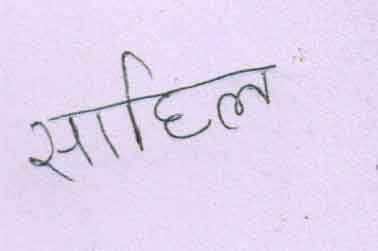 साहिल